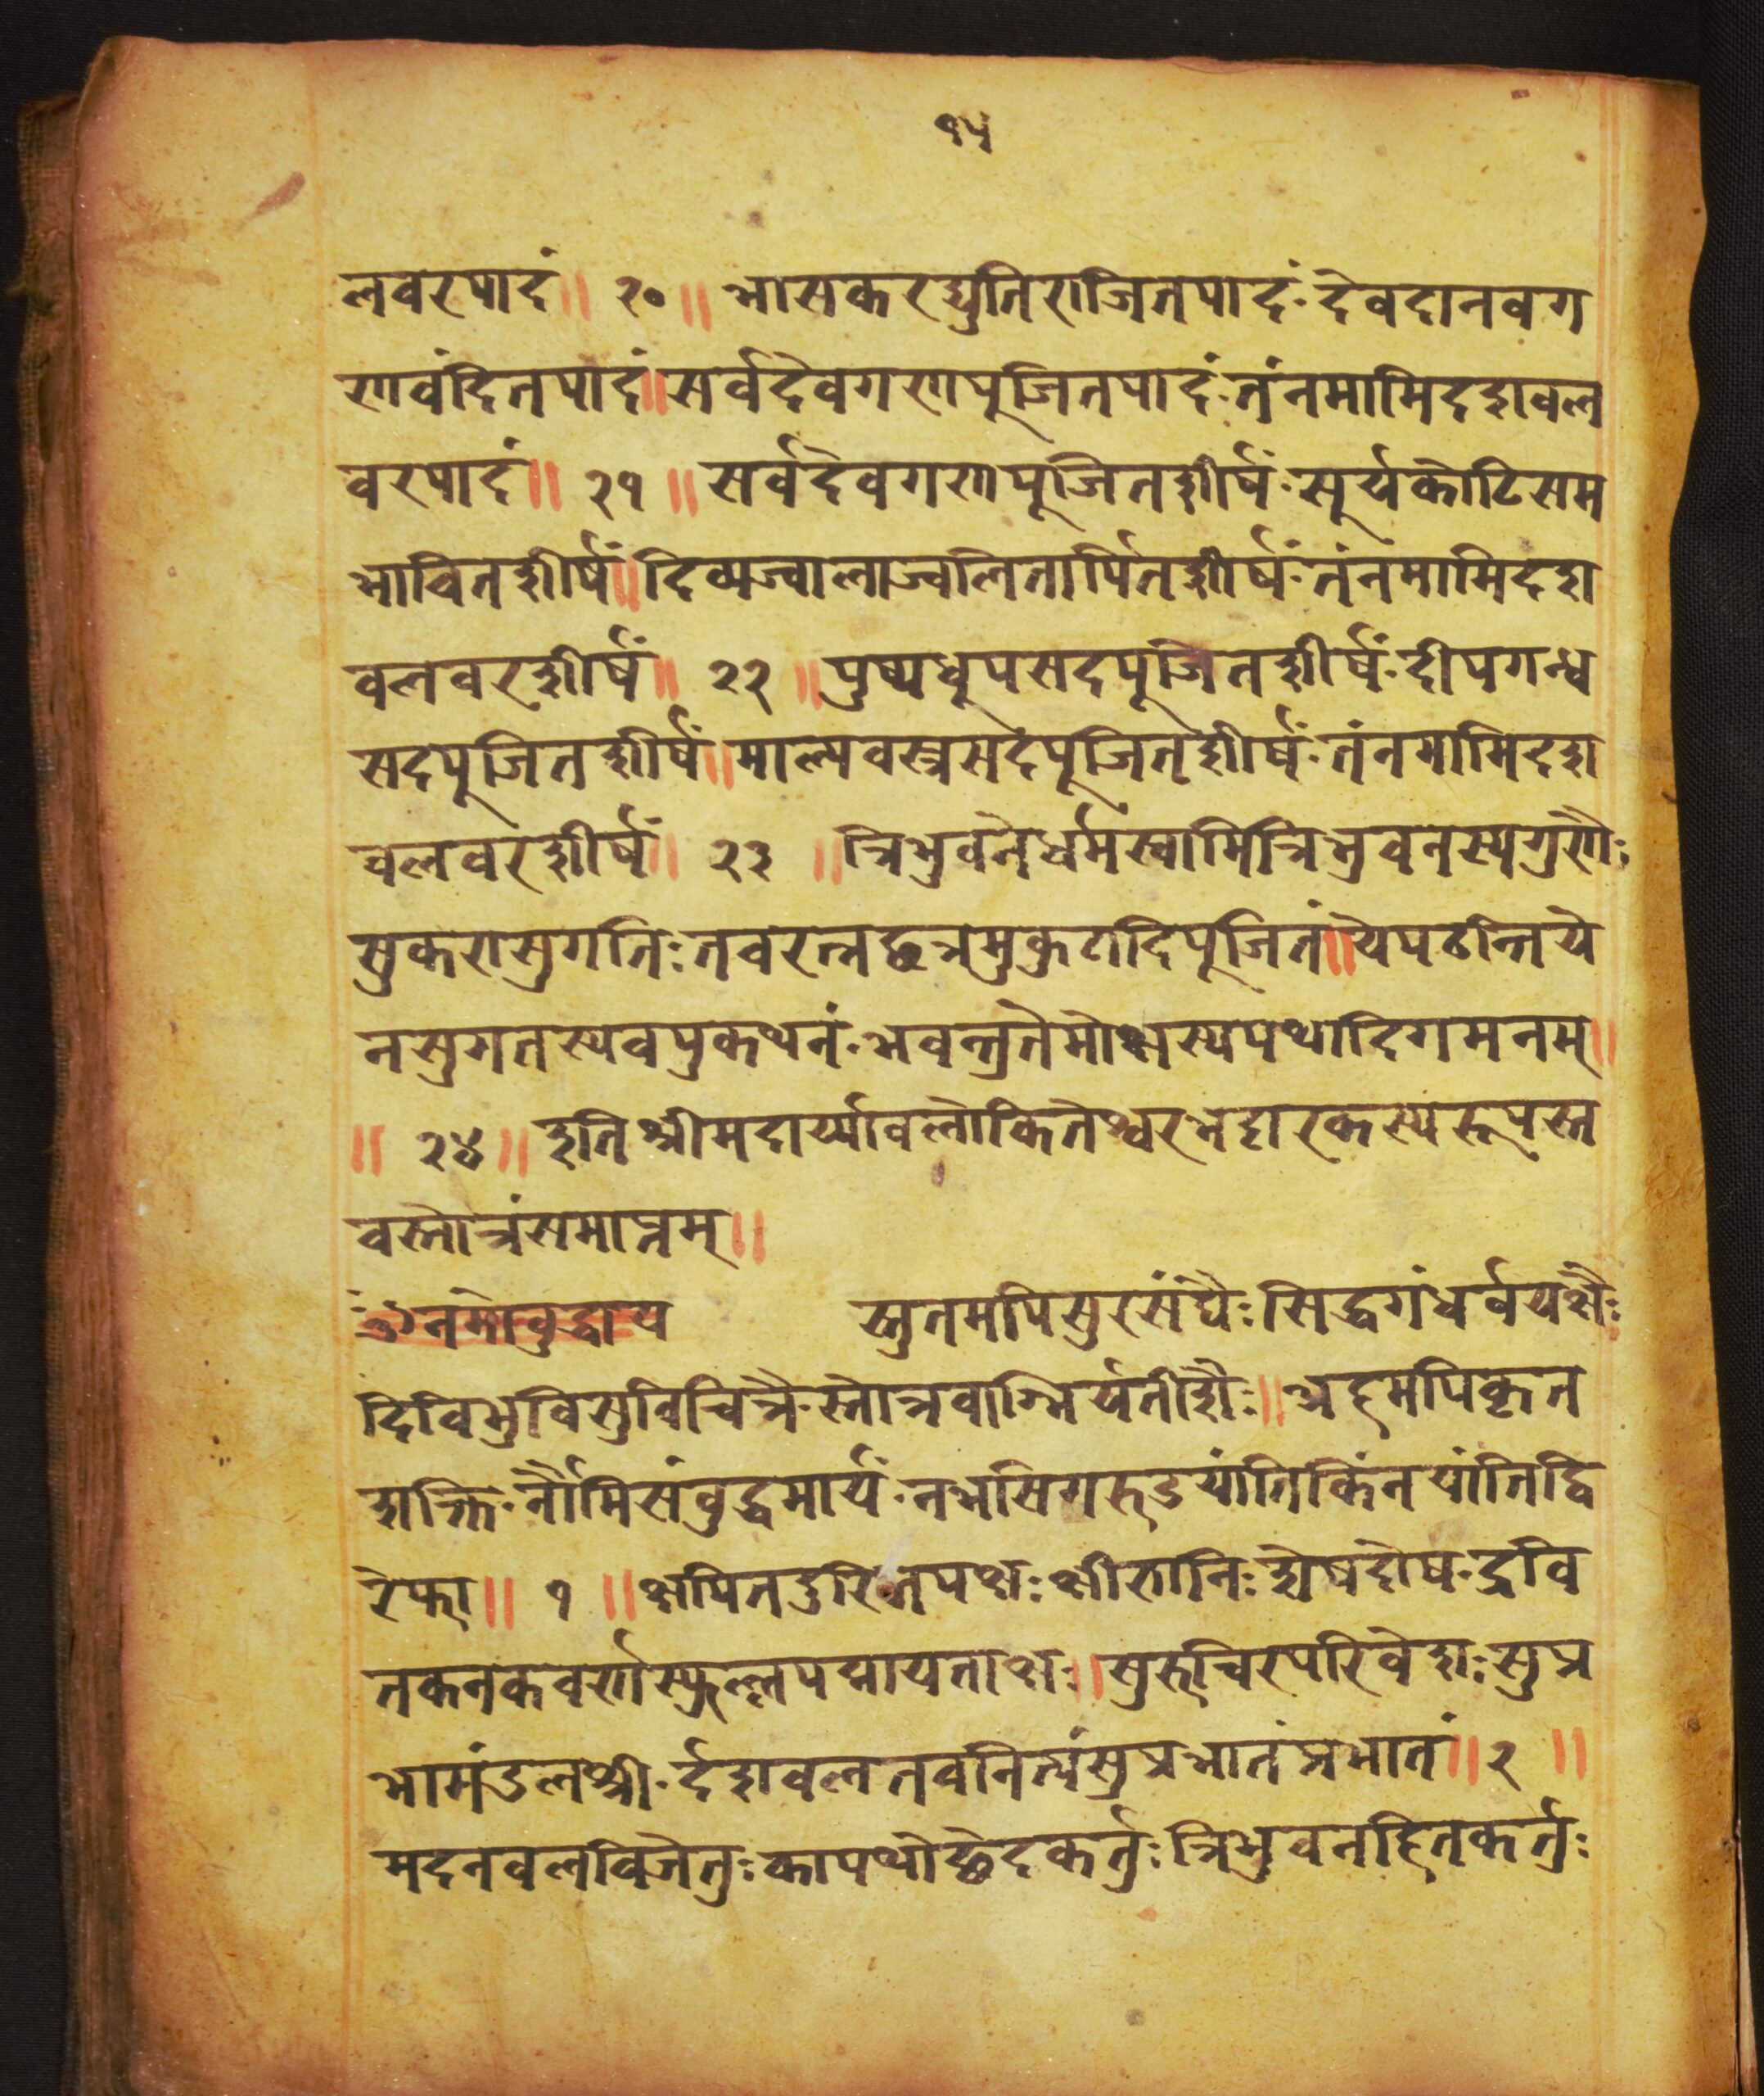 १५
लवरपादं॥ २० ॥भासकरद्युतिराजितपादं. देवदानवग
णवंदितपादं॥सर्वदेवगणपुजितपादं. तंनमामिदशवल
वरपादं॥ २१ ॥सर्वदेवगणपूजितशीर्षं. सूर्यकोटिसम
भावितशीर्षं॥दिव्यज्वालाज्वलितार्पितशीर्षं. तंनमामिदश
वलवरशीर्षं॥ २२ ॥पुष्पधूपसदपूजितशीर्षं. दीपगन्ध
सदपूजितशीर्षं॥माल्यवस्त्रसदपूजितशीर्षं. तंनमामिदश
वलवरशीर्षं॥ २३ ॥त्रिभुवनेर्धमस्वामित्रिभुवनस्यगुरोः
सुकरासुगतिः तवरत्नछत्रमुकुटादिपूजितं॥येपठन्तिये
नसुगतस्यवपुकथनं. भवन्तुतेमोक्षस्यपथादिगमनम्॥
॥ २४ ॥इतिश्रीमदार्य्यावलोकितेश्वरभट्टारकस्यरूपस्त
वस्तोत्रंसमाप्तम्॥
ॐनमोवुद्धाय स्तुतमपिसुरसंघैः सिद्धगंधर्वयक्षैः
दिविभुविसुविचित्रै. स्तोत्रवाग्भिर्यतीशैः॥अहमपिकृत
शक्ति. र्नौमिसंवुद्धमार्यं. नभसिगरुडयांतिकिंनयांतिद्वि
रेफा॥ १ ॥क्षपितदुरितपक्षः क्षीणनिः शेषदोष. द्रवि
तकनकवर्णास्फुल्लपद्मायताक्षः॥सुरुचिरपरिवेशः सुप्र
भामंडलश्री. र्ददशवलतवनित्यंसुप्रभातंप्रभातं॥ २ ॥
मदनवलविजेतुः कापथोछेदकर्तुः त्रिभुवनहितकर्तुः